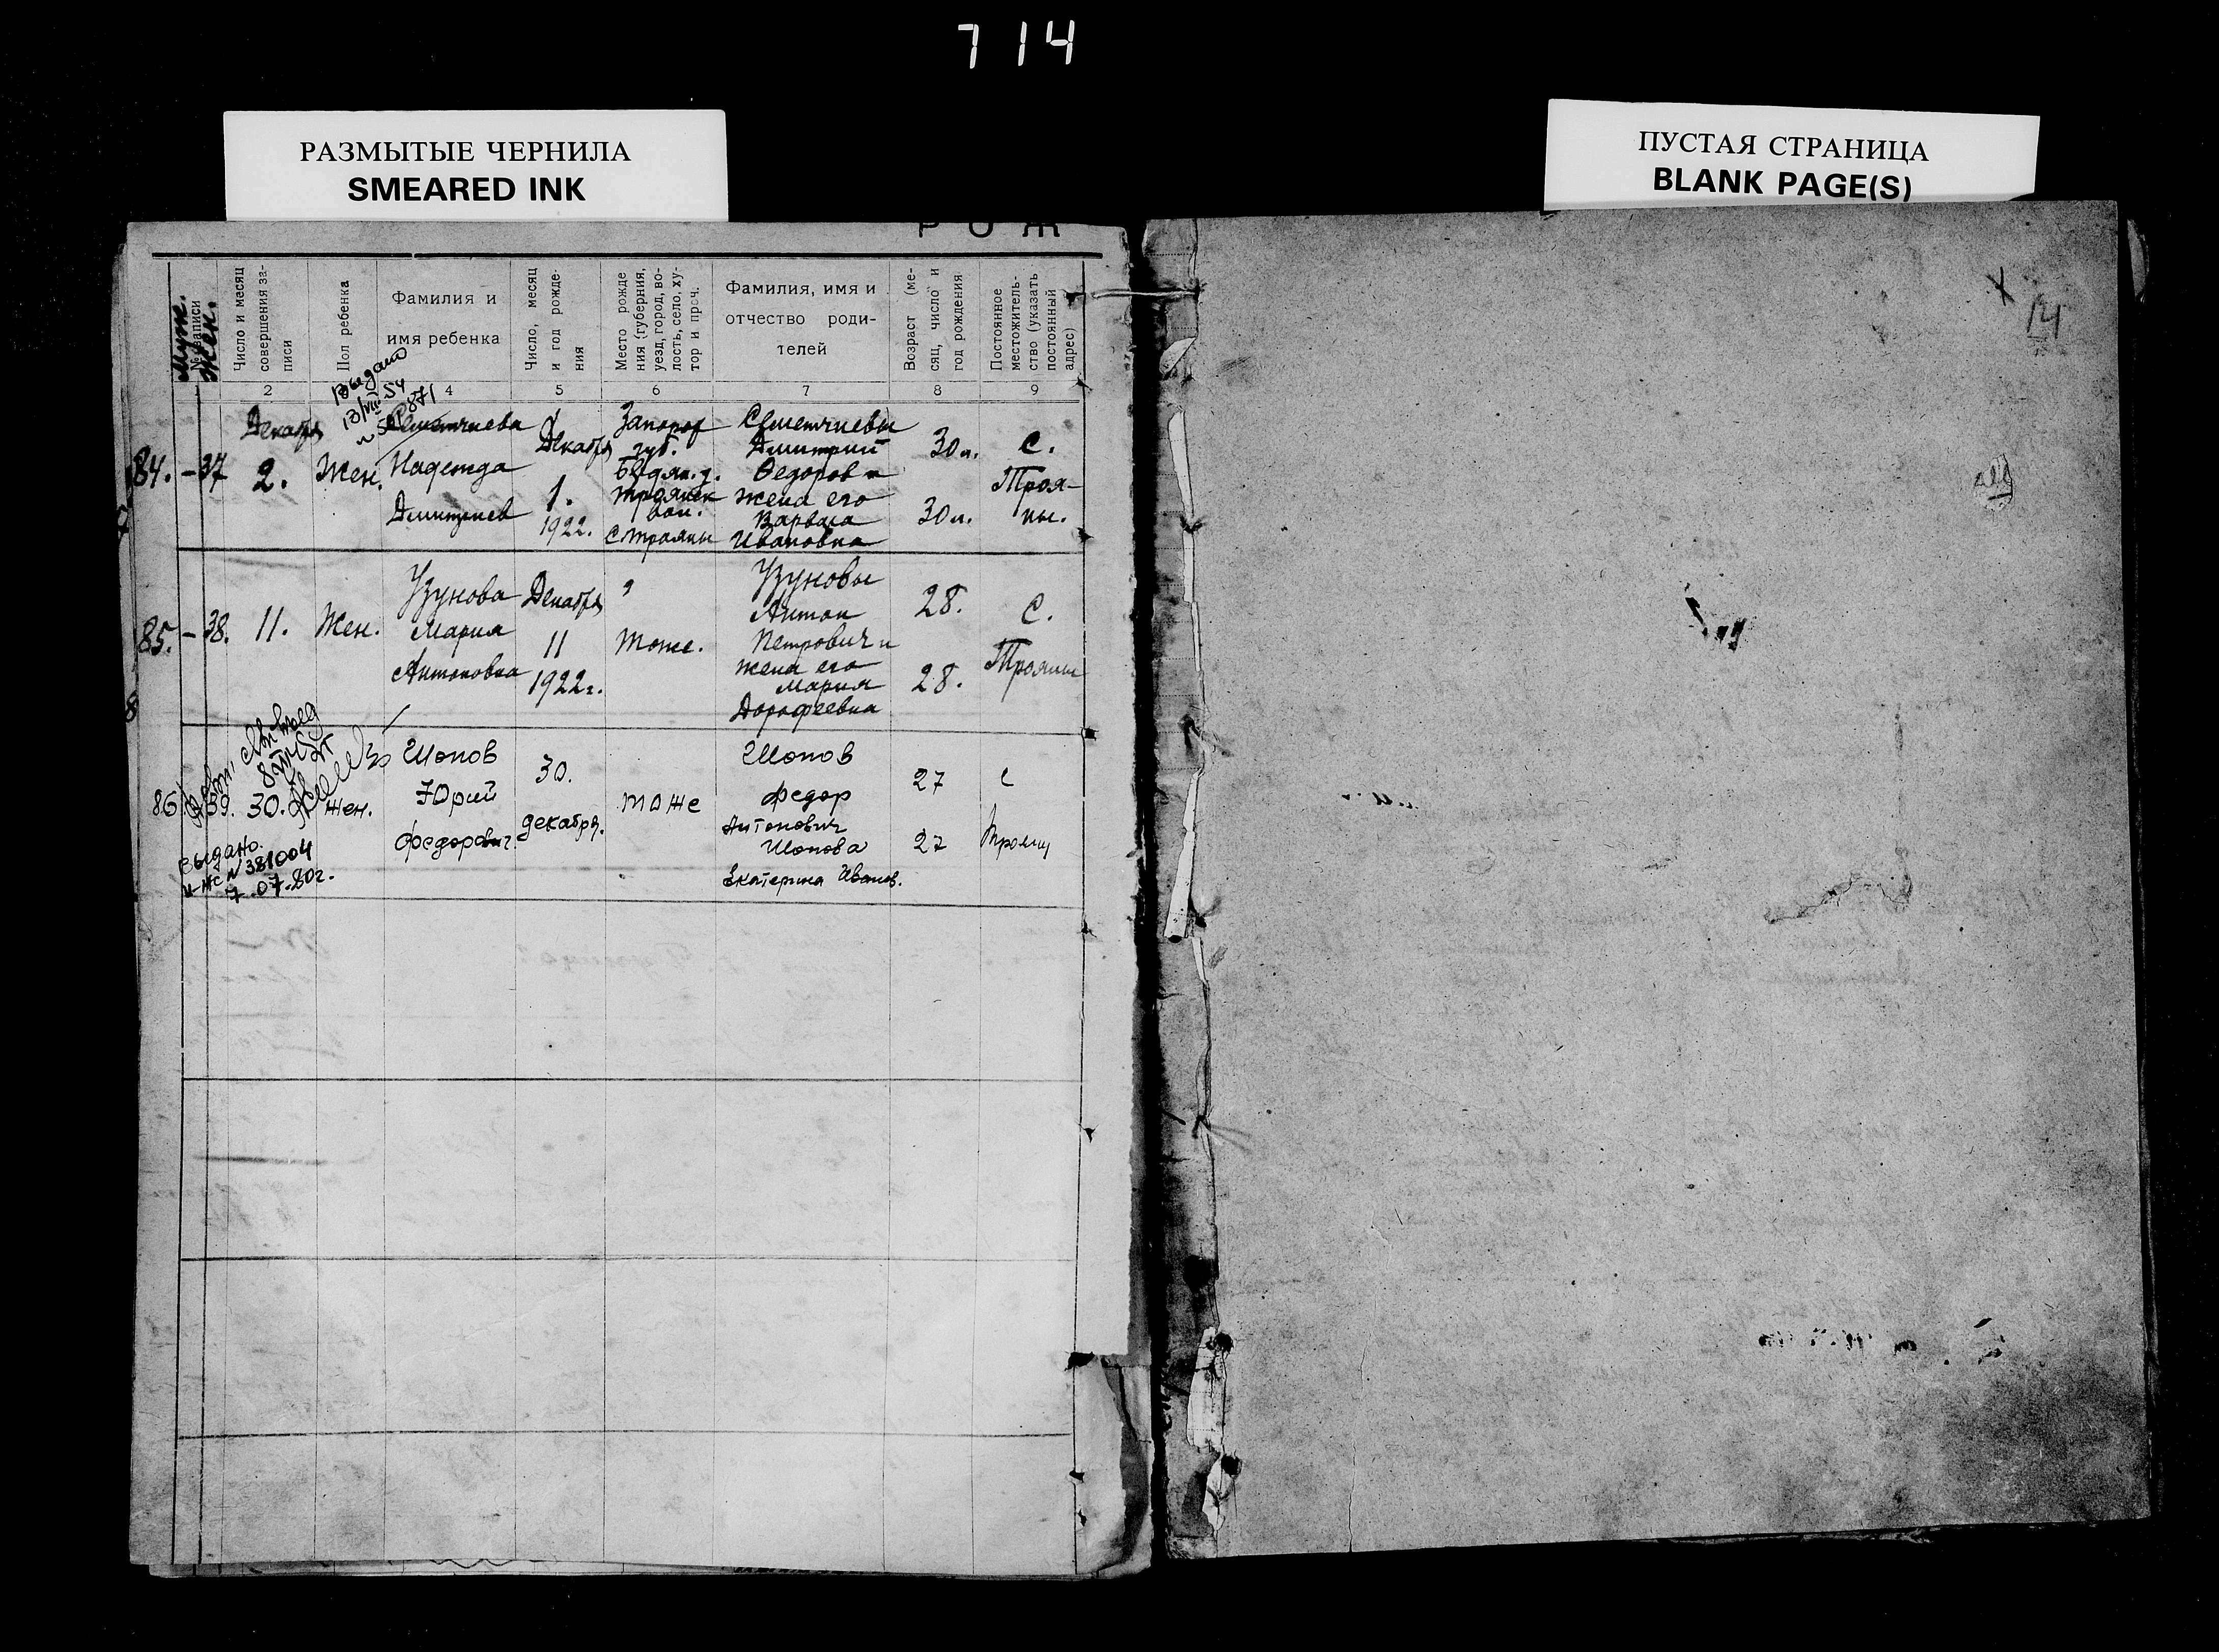 714
РАЗМЫТЫЕ ЧЕРНИЛА
SMEARED INK
ПУСТАЯ СТРАНИЦА
BLANK PAGE(S)
РОЖ
Муж.
№ записи
Жен.
Число и месяц
совершения за-
писи
Пол ребенка
Фамилия и
имя ребенка
Число, месяц
и год рожде-
ния
Место рожде
ния (губерния,
уезд, город, во-
лость, село, ху-
тор и проч.
Фамилия, имя и
отчество роди-
телей
Возраст (ме-
сяц, число и
год рождения
Постоянное
местожитель-
ство (указать
постоянный
адрес)
2 4 5 6 7 8 9
Выдано
13/VIII 54
84. - 37
Декабря
2.
Жен.
Семетчиева
Надежда
Дмитриев
Декабря
1.
1922.
Запорож
губ.
Бердян. у.
Троянск
вол.
с Трояны
Семетчиевы
Дмитрий
Федоров и
жена его
Варвара
Ивановна
30 л.
30 л.
с.
Троя-
ны.
85. - 38.
11.
Жен.
Узунова
Мария
Антоновна
Декабря
11
1922 г.
Тоже.
Узуновы
Антон
Петрович и
жена его
Мария
Дорофеевна
28.
28.
с.
Трояны
86
39.
30.
жен.
Шопов
Юрий
Федорович.
30.
декабря.
тоже
Шопов
Федор
Антонович
Шопова
Екатерина Иванов.
27
27
с
Трояны
выдано.
и-жс № 381004
7.07.80г.
14